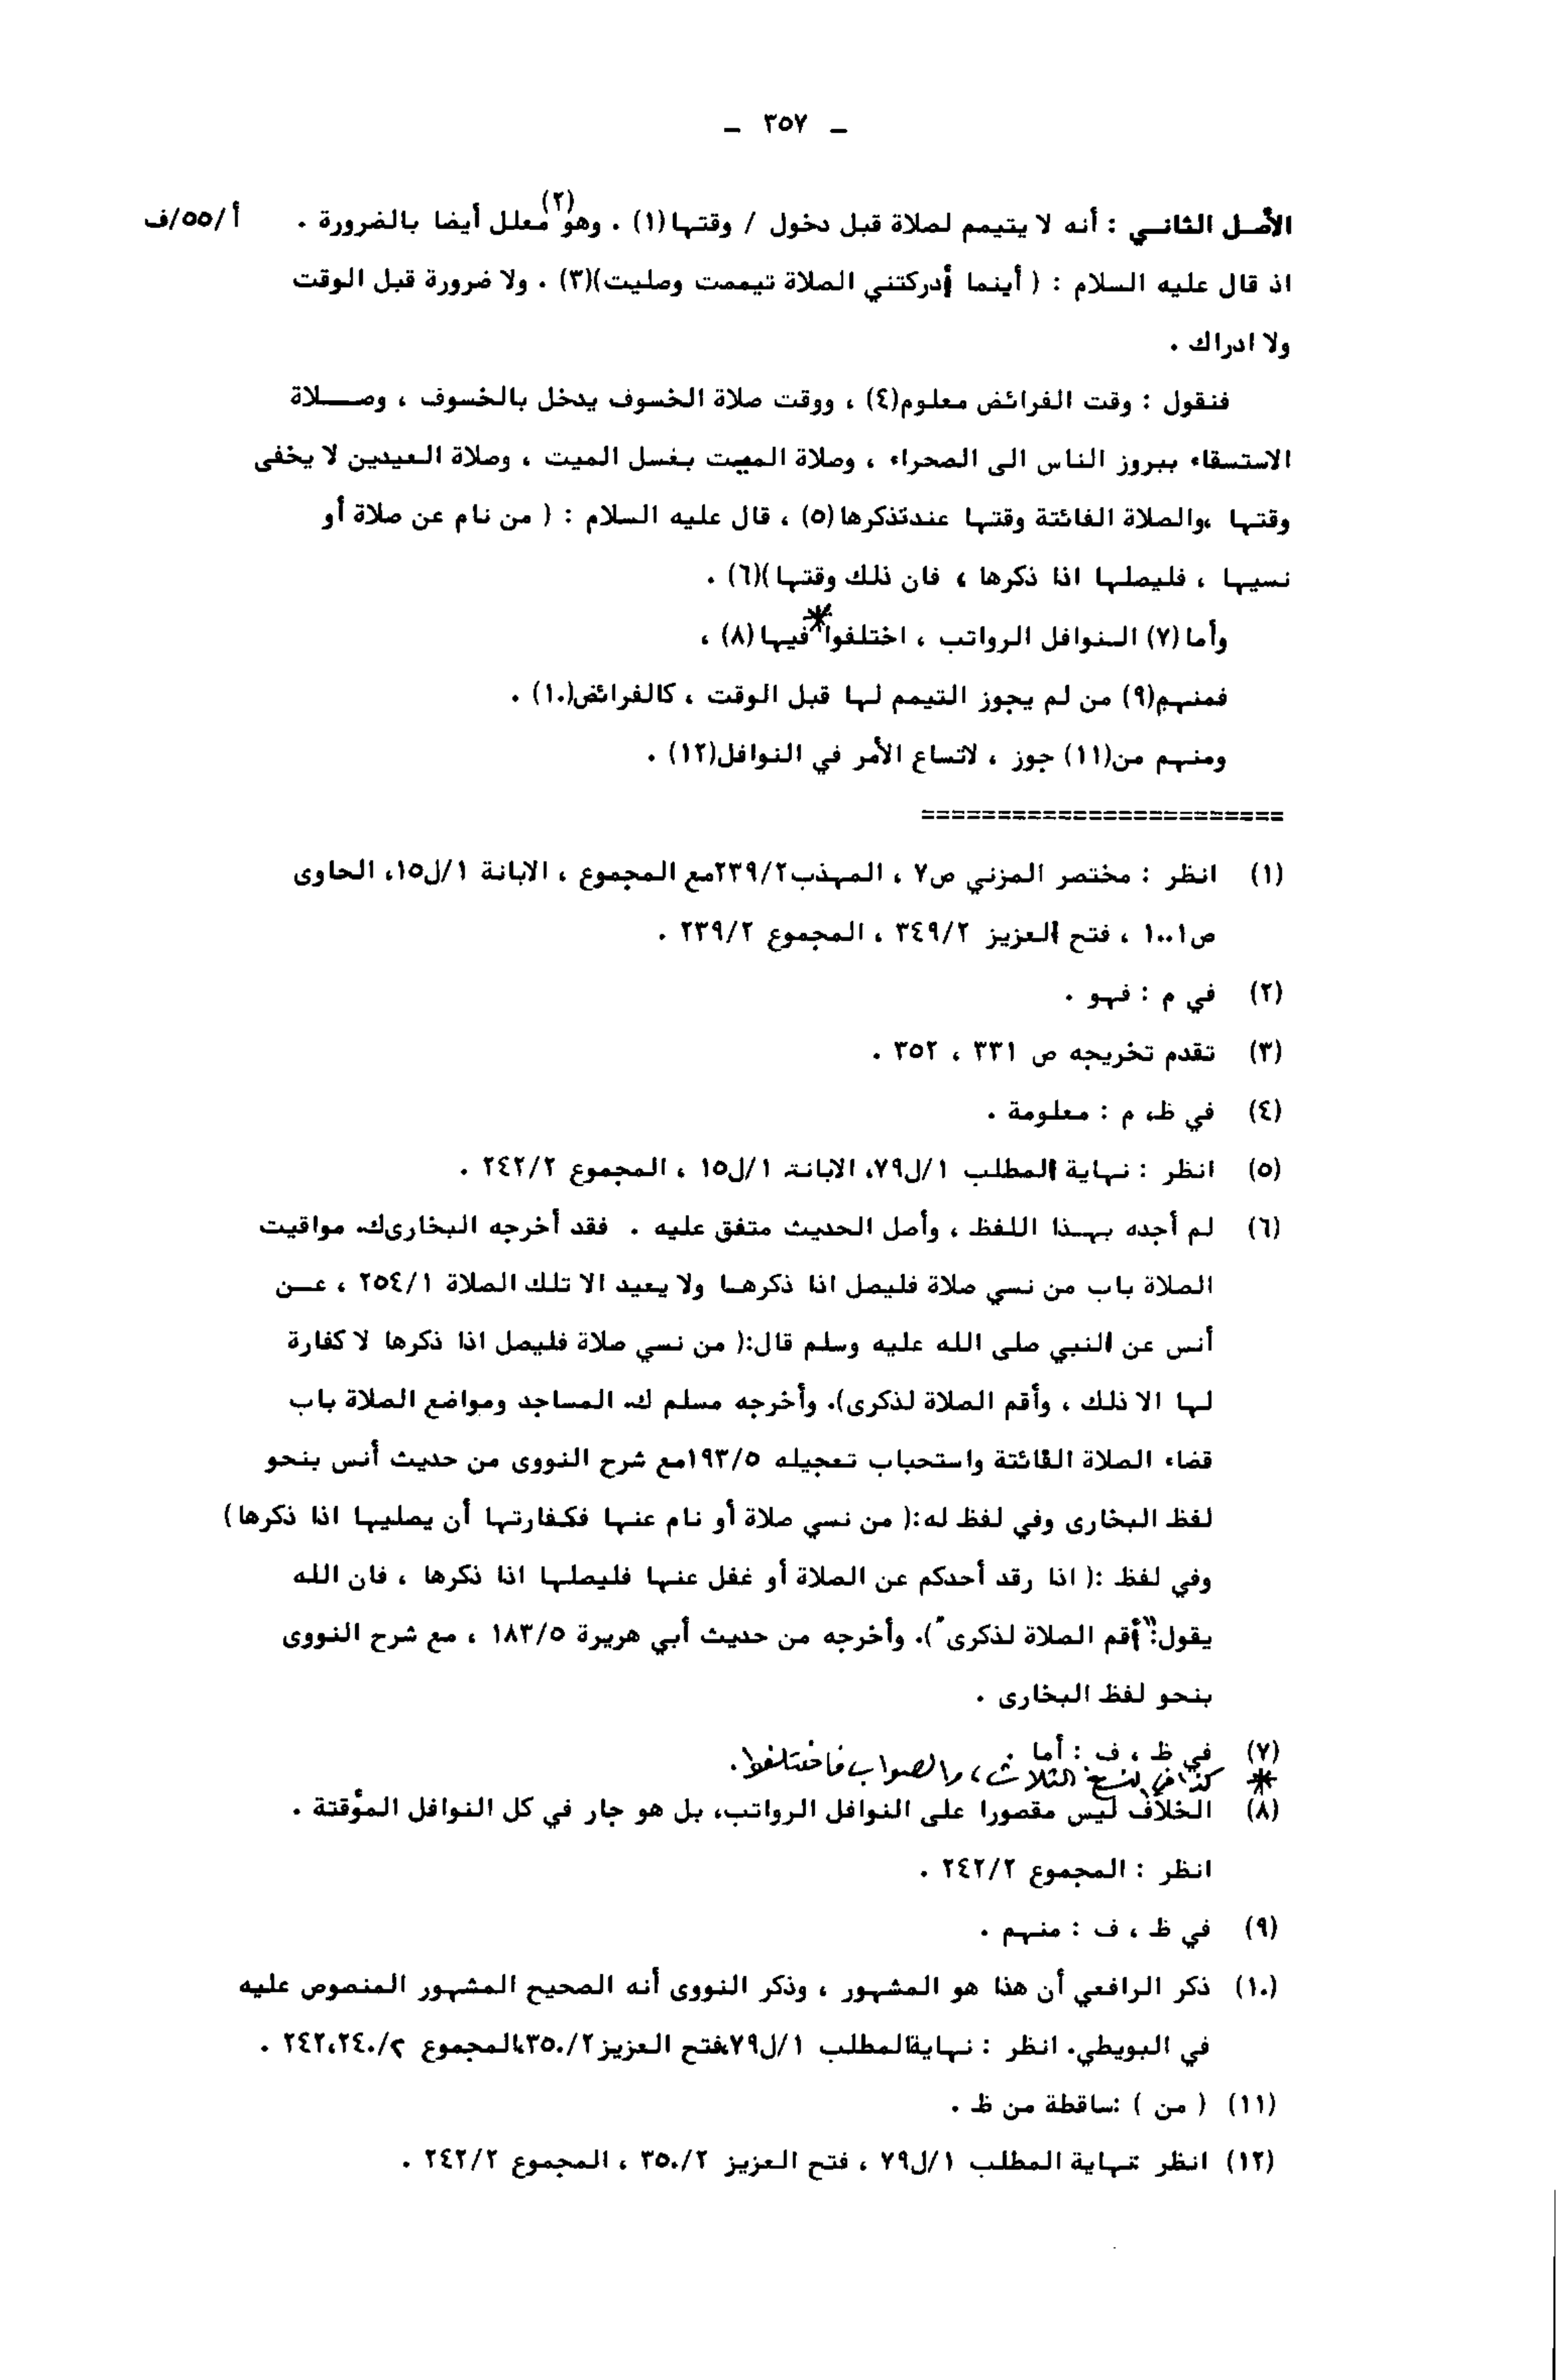 - ٣٥٧ -
الأصل الثاني : أنه لا يتيمم لصلاة قبل دخول / وقتها(١) . وهو(٢) معلل أيضا بالضرورة . أ/٥٥/ف
اذ قال عليه السلام : ( أينما أدركتني الصلاة تيممت وصليت)(٣) . ولا ضرورة قبل الوقت
ولا ادراك .
فنقول : وقت الفرائض معلوم(٤) ، ووقت صلاة الخسوف يدخل بالخسوف ، وصلاة
الاستسقاء ببروز الناس الى الصحراء ، وصلاة الميت بغسل الميت ، وصلاة العيدين لا يخفى
وقتها ،والصلاة الفائتة وقتها عندتذكرها(٥) ، قال عليه السلام : ( من نام عن صلاة أو
نسيها ، فليصلها اذا ذكرها ، فان ذلك وقتها)(٦) .
وأما (٧) النوافل الرواتب ، اختلفوا* فيها(٨) ،
فمنهم(٩) من لم يجوز التيمم لها قبل الوقت ، كالفرائض(١٠) .
ومنهم من(١١) جوز ، لاتساع الأمر في النوافل(١٢) .
========================
(١) انظر : مختصر المزني ص٧ ، المهذب٢٣٩/٢مع المجموع ، الابانة ١/ل١٥، الحاوى
ص١٠٠١ ، فتح العزيز ٣٤٩/٢ ، المجموع ٢٣٩/٢ .
(٢) في م : فهو .
(٣) تقدم تخريجه ص ٣٣١ ، ٣٥٢ .
(٤) في ظ، م : معلومة .
(٥) انظر : نهاية المطلب ١/ل٧٩، الابانة ١/ل١٥ ، المجموع ٢٤٢/٢ .
(٦) لم أجده بهذا اللفظ ، وأصل الحديث متفق عليه . فقد أخرجه البخارى ك. مواقيت
الصلاة باب من نسي صلاة فليصل اذا ذكرها ولا يعيد الا تلك الصلاة ٢٥٤/١ ، عن
أنس عن النبي صلى الله عليه وسلم قال:( من نسي صلاة فليصل اذا ذكرها لا كفارة
لها الا ذلك ، وأقم الصلاة لذكرى). وأخرجه مسلم ك. المساجد ومواضع الصلاة باب
قضاء الصلاة الفائتة واستحباب تعجيله ١٩٣/٥مع شرح النووى من حديث أنس بنحو
لفظ البخارى وفي لفظ له:( من نسي صلاة أو نام عنها فكفارتها أن يصليها اذا ذكرها )
وفي لفظ :( اذا رقد أحدكم عن الصلاة أو غفل عنها فليصلها اذا ذكرها ، فان الله
يقول:"أقم الصلاة لذكرى"). وأخرجه من حديث أبي هريرة ١٨٣/٥ ، مع شرح النووى
بنحو لفظ البخارى .
(٧) في ظ ، ف : أما .
* كذا في النسخ الثلاث، والصواب فاختلفوا.
(٨) الخلاف ليس مقصورا على النوافل الرواتب، بل هو جار في كل النوافل المؤقتة .
انظر : المجموع ٢٤٢/٢ .
(٩) في ظ ، ف : منهم .
(١٠) ذكر الرافعي أن هذا هو المشهور ، وذكر النووى أنه الصحيح المشهور المنصوص عليه
في البويطي. انظر : نهايةالمطلب ١/ل٧٩،فتح العزيز ٣٥٠/٢،المجموع ٢٤٢،٢٤٠/٢ .
(١١) ( من ) :ساقطة من ظ .
(١٢) انظر نهاية المطلب ١/ل٧٩ ، فتح العزيز ٣٥٠/٢ ، المجموع ٢٤٢/٢ .